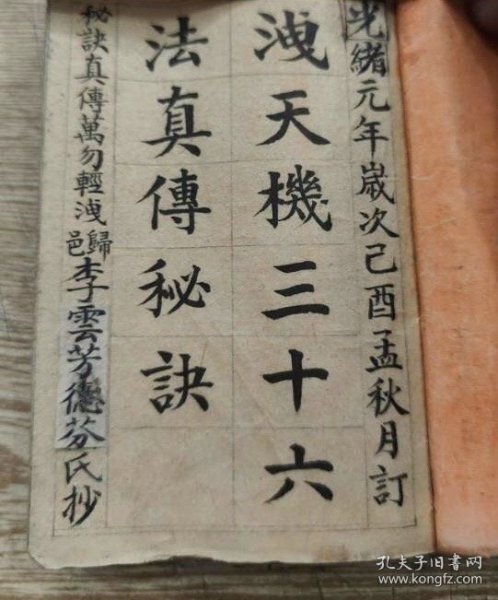 光緒元年歲次己酉孟秋月訂
洩天機三十六
法真傳秘訣
秘訣真傳萬勿輕洩歸邑李雲芳德芬氏抄
孔夫子旧书网
www.kongfz.com